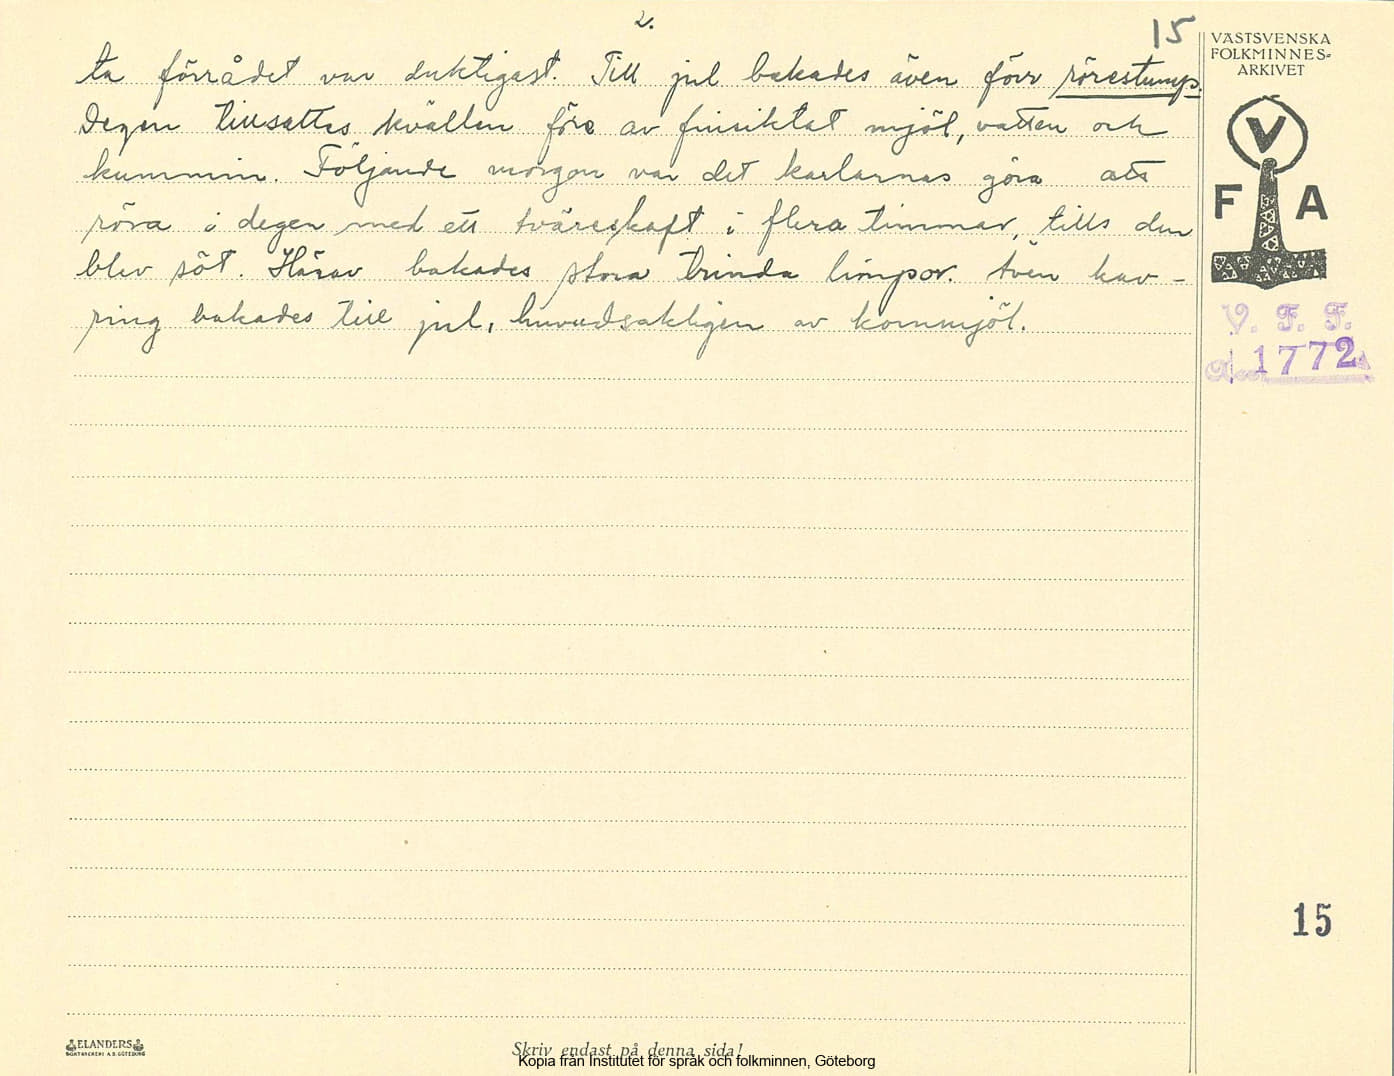 2.
15
ta förrådet var duktigast. Till jul bakades även förr rörestump.
Degen tillsattes kvällen före av finsiktat mjöl, vatten och
kummin. Följande morgon var det karlarnas göra att
röra i degen med ett tväreskaft i flera timmar, tills den
blev söt. Härav bakades stora trinda limpor. Även kav-
ring bakades till jul, huvudsakligen av kornmjöl.
VÄSTSVENSKA
FOLKMINNES-
ARKIVET
V
F A
V. F. F.
Acc. 1772
15
ELANDERS
BOKTRYCKERI A.B. GÖTEBORG
Skriv endast på denna sida!
Kopia från Institutet för språk och folkminnen, Göteborg